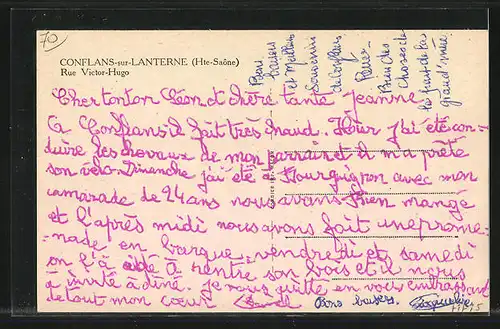 70
CONFLANS-sur-LANTERNE (Hte-Saône)
Rue Victor-Hugo
Bons
baisers
et Meilleurs
Souvenirs
de Conflans
Bien des
choses de
la part de la
grand'mère
Cher tonton Léon et chère tante Jeanne
Ca Conflans il fait très chaud. Hier j'ai été con-
duire les chevaux de mon parrain et il m'a prêté
son vélo. Dimanche j'ai été à Bourgignon avec mon
camarade de 24 ans nous avons bien mangé
et l'après midi nous avons fait une prome-
nade en barque, vendredi et samedi
on l'a aidé à rentré son bois et il nous
a invité a dîné. je vous quitte en vous embrassant
de tout mon coeur
Bons baisers